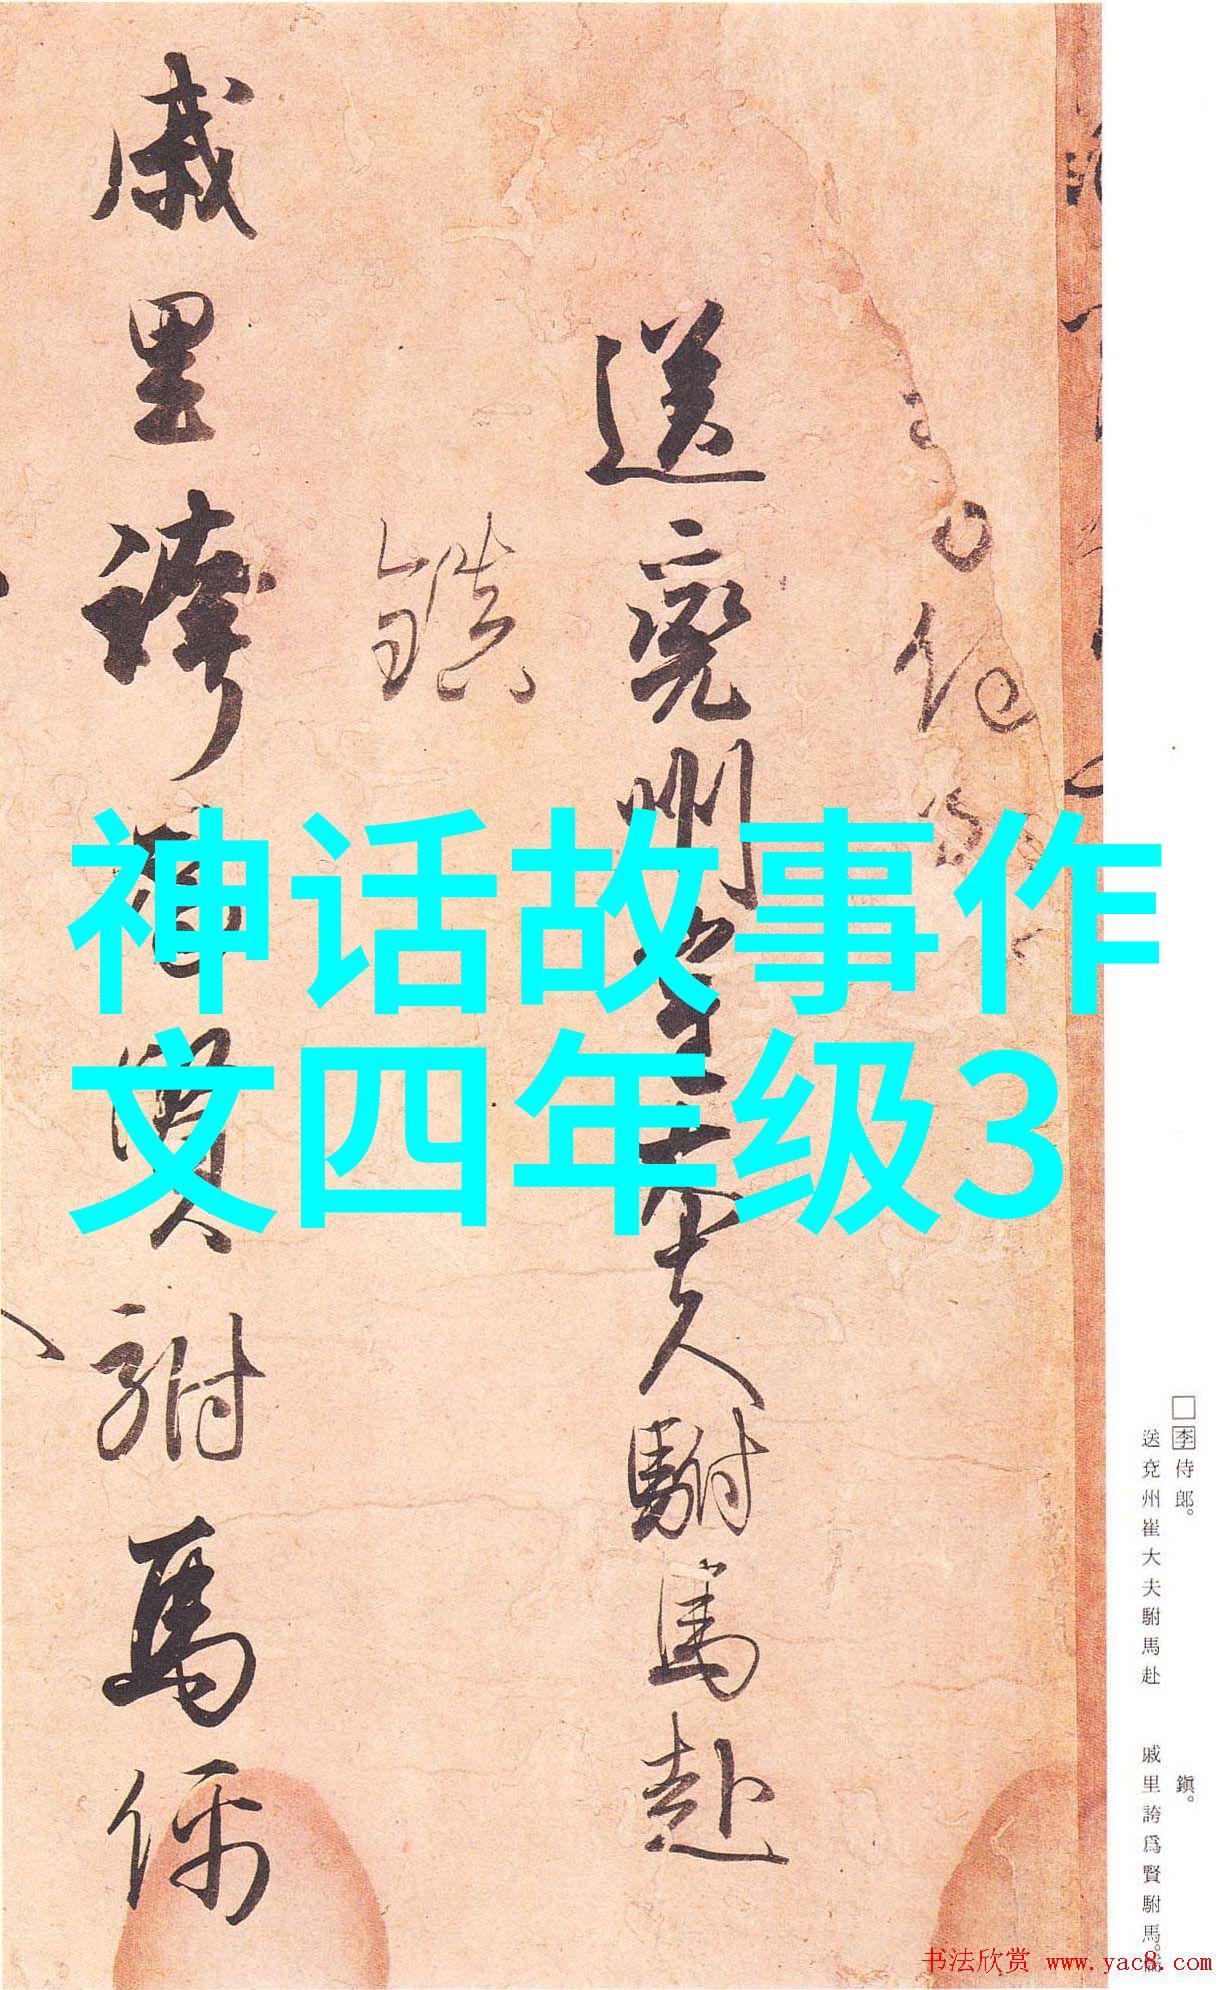 □李侍郎。
送兗州崔大夫駙馬赴
鎭。
戚里誇爲賢駙馬。儒
送兗州崔大夫駙馬赴
鎮
戚里誇為賢駙馬儒
神话故事作
文四年级3
书法欣赏 www.yac8.com